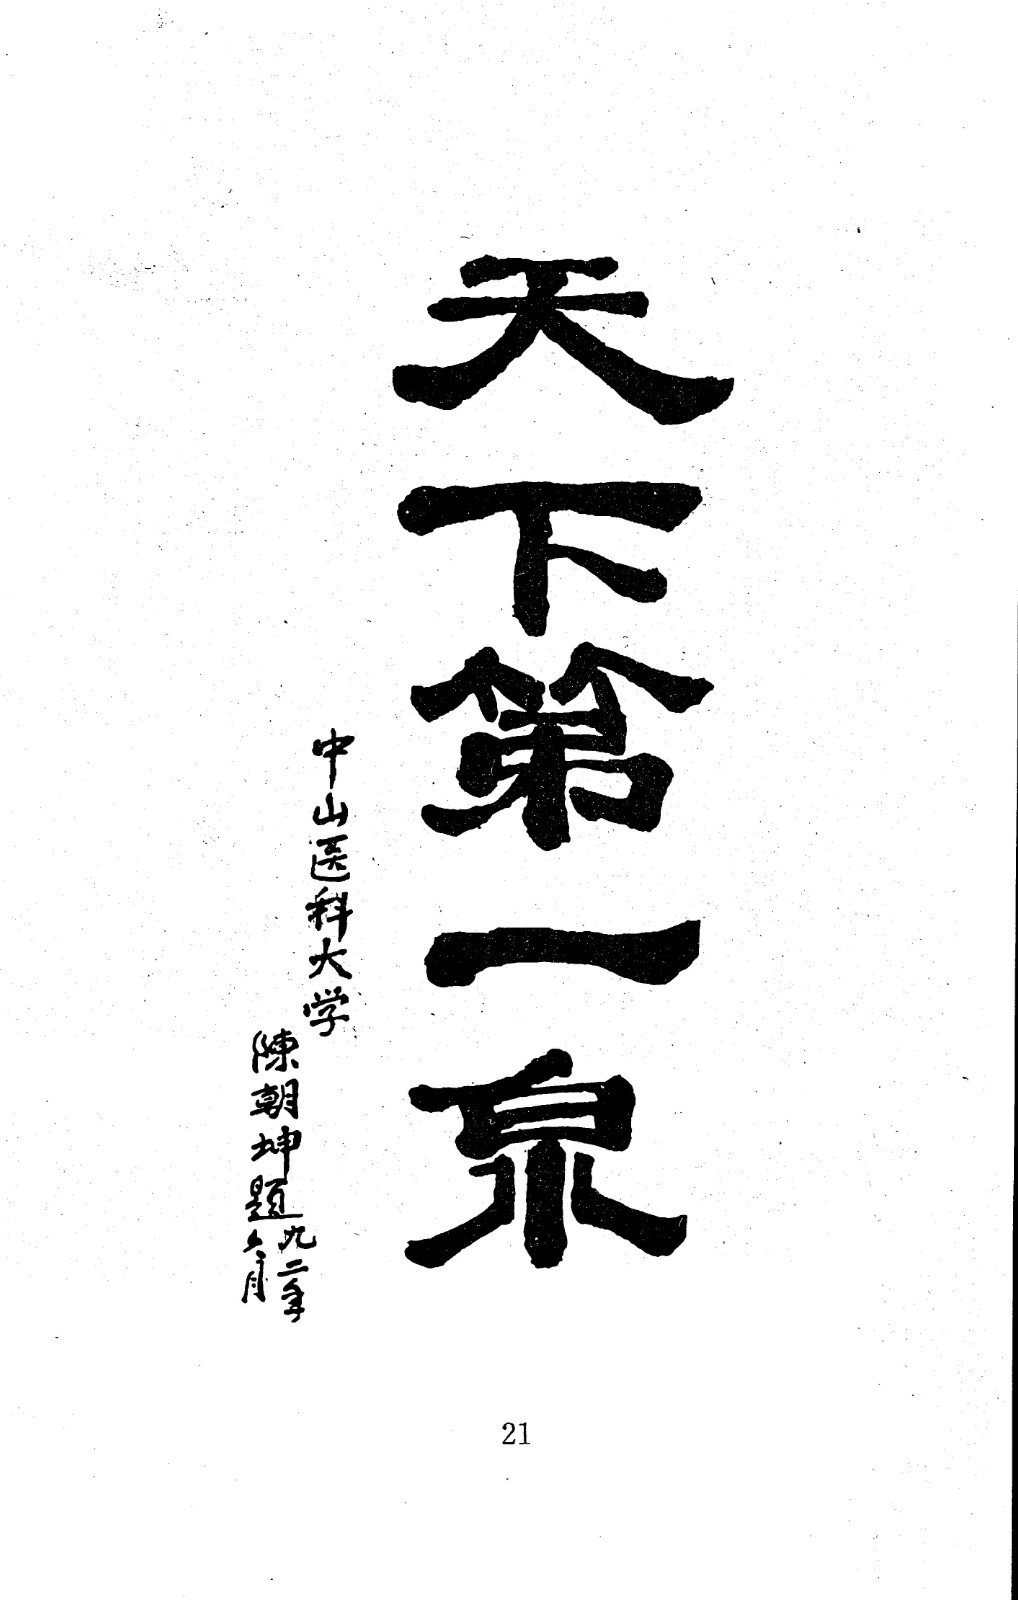 天下第一泉
中山医科大学
陳朝坤題
九二年
六月
21